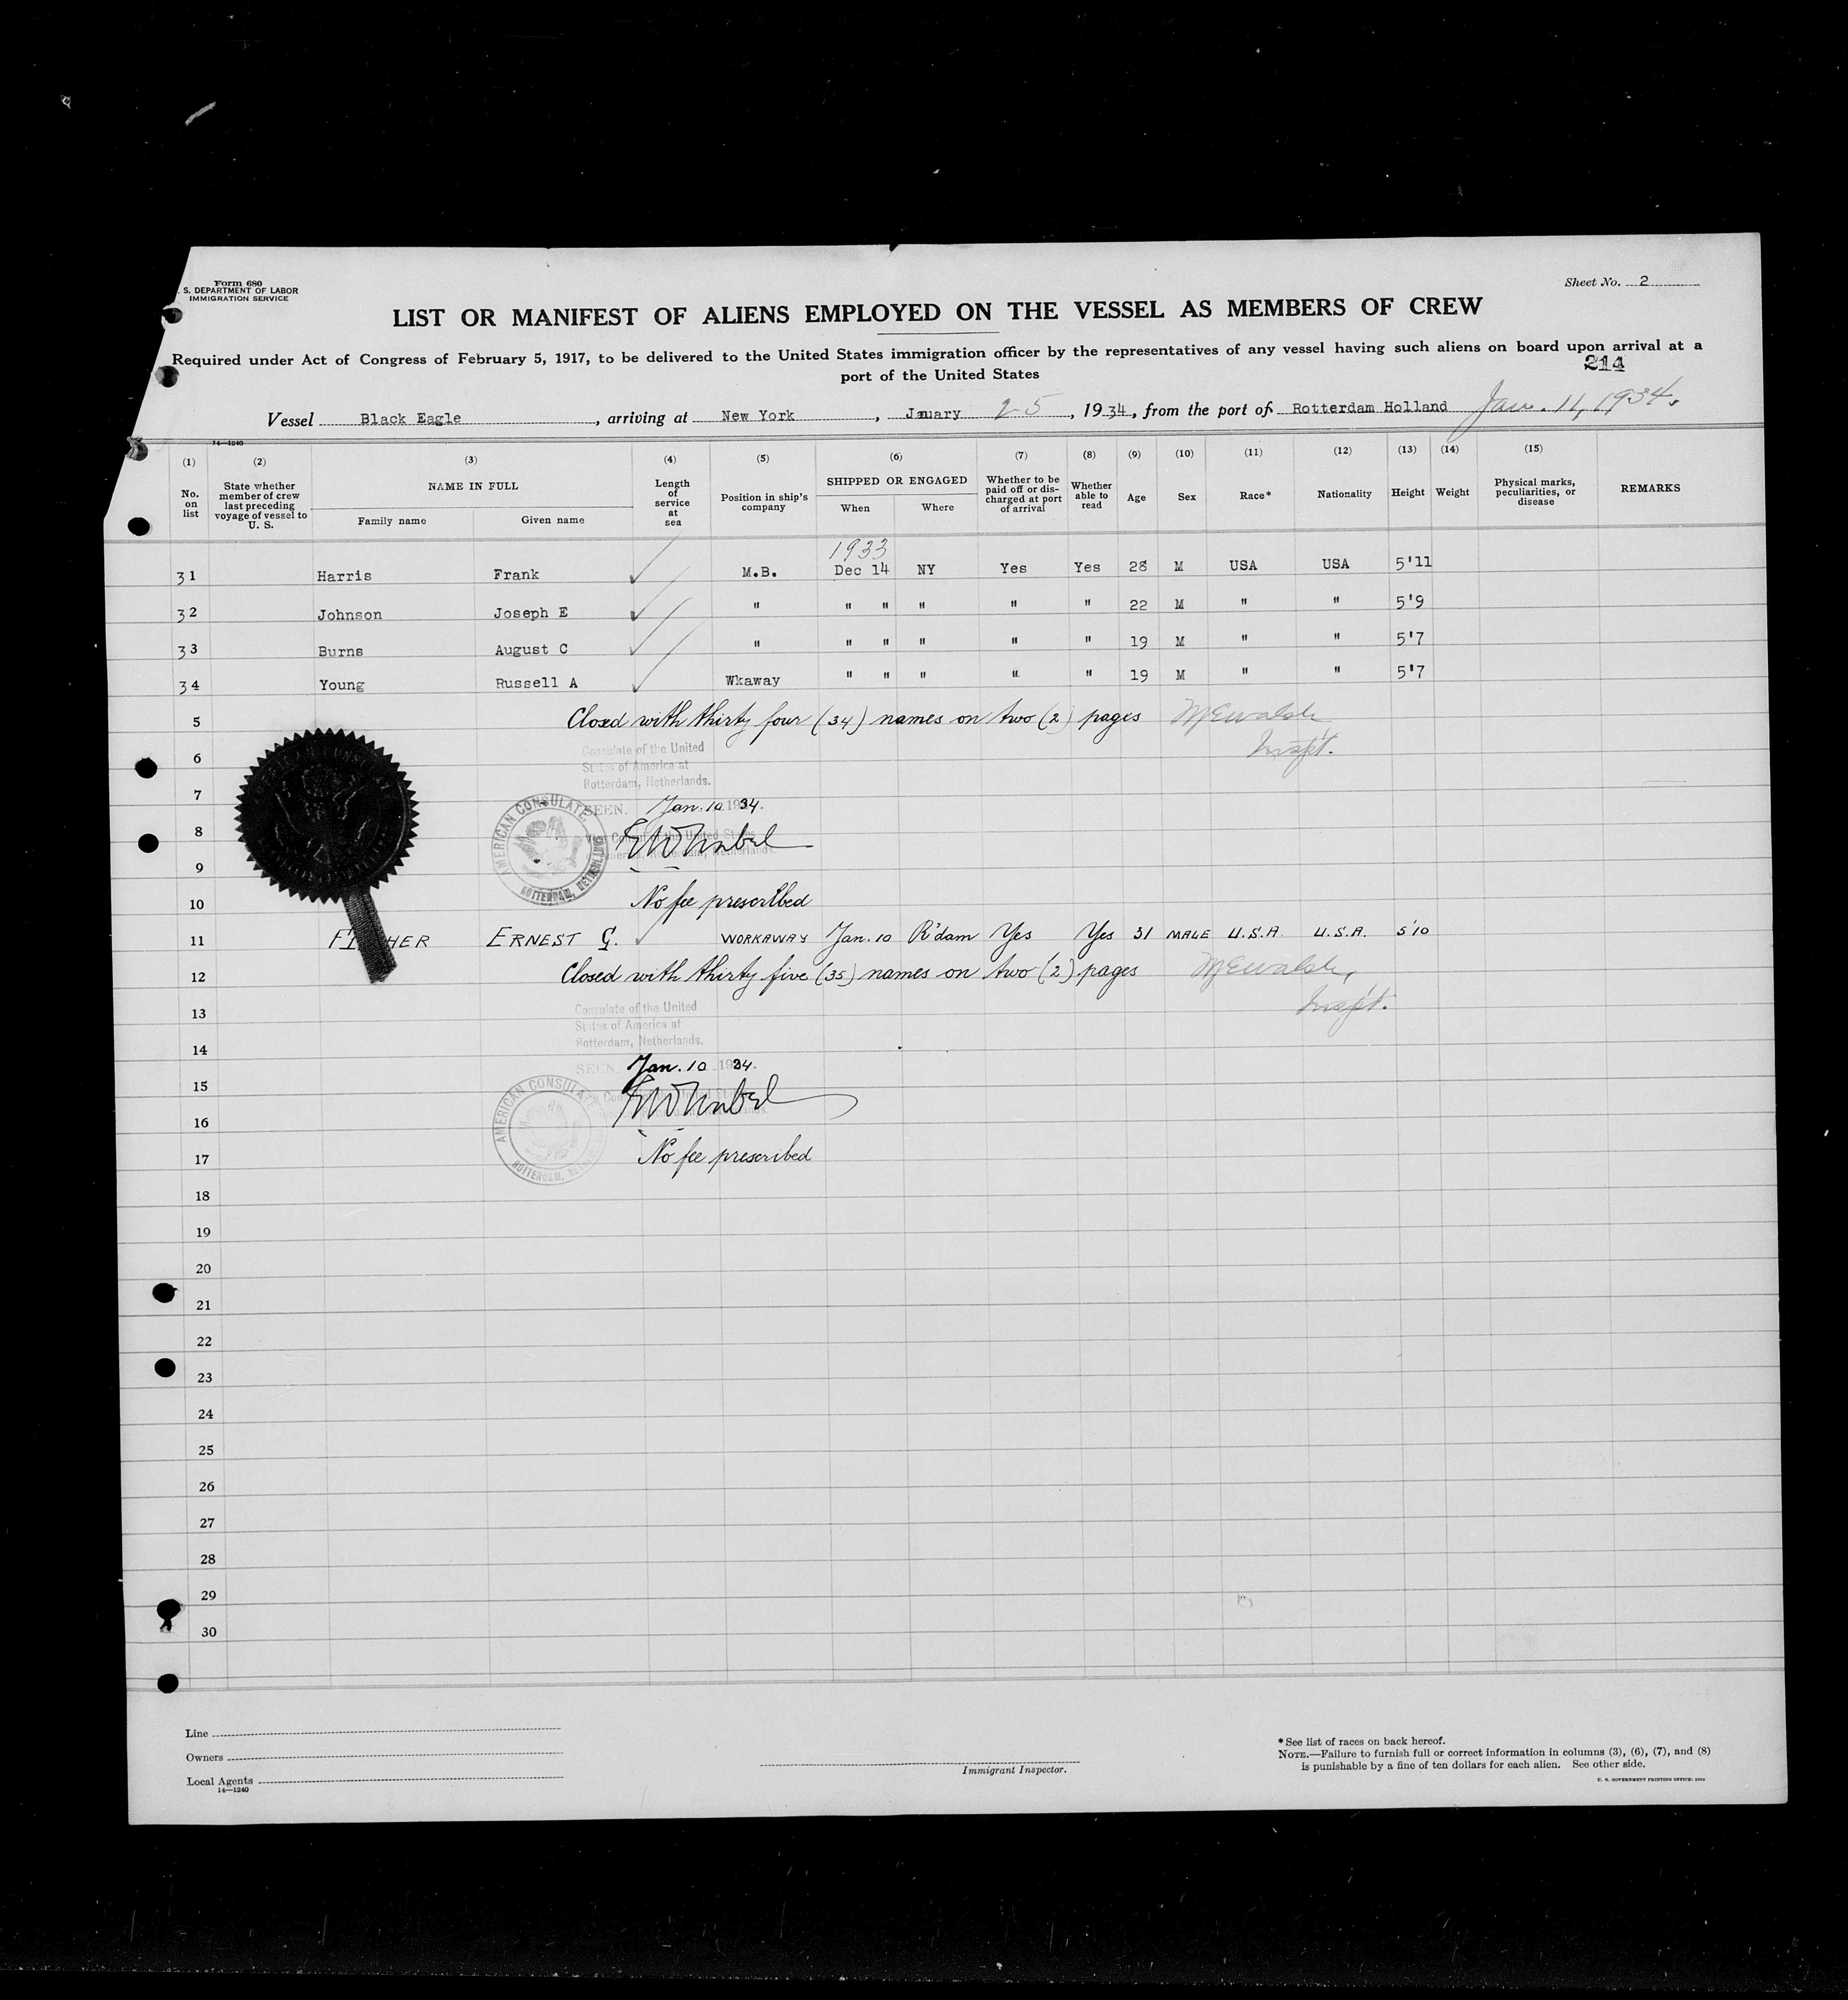 Form 680
S. DEPARTMENT OF LABOR
IMMIGRATION SERVICE
Sheet No. 2
LIST OR MANIFEST OF ALIENS EMPLOYED ON THE VESSEL AS MEMBERS OF CREW
Required under Act of Congress of February 5, 1917, to be delivered to the United States immigration officer by the representatives of any vessel having such aliens on board upon arrival at a
port of the United States
214
Vessel Black Eagle, arriving at New York, January 25, 1934, from the port of Rotterdam Holland Jan. 11, 1934.
14—1240
(1) (2) (3) (4) (5) (6) (7) (8) (9) (10) (11) (12) (13) (14) (15)
No. on list
State whether member of crew last preceding voyage of vessel to U. S.
NAME IN FULL
Family name
Given name
Length of service at sea
Position in ship's company
SHIPPED OR ENGAGED
When
Where
Whether to be paid off or discharged at port of arrival
Whether able to read
Age
Sex
Race*
Nationality
Height
Weight
Physical marks, peculiarities, or disease
REMARKS
1933
31 Harris Frank ✓ M.B. Dec 14 NY Yes Yes 28 M USA USA 5'11
32 Johnson Joseph E ✓ " " " " " " 22 M " " 5'9
33 Burns August C ✓ " " " " " " 19 M " " 5'7
34 Young Russell A ✓ Wkaway " " " " " 19 M " " 5'7
5 Closed with thirty four (34) names on two (2) pages
Inspt.
6 Consulate of the United
States of America at
7 Rotterdam, Netherlands.
SEEN. Jan. 10 1934.
8
AMERICAN CONSULATE, ROTTERDAM, NETHERLANDS
9
10 No fee prescribed
11 FISHER ERNEST G. ✓ WORKAWAY Jan. 10 R'dam Yes Yes 31 MALE U.S.A. U.S.A. 5'10
12 Closed with thirty five (35) names on two (2) pages
Inspt.
13 Consulate of the United
States of America at
14 Rotterdam, Netherlands.
SEEN. Jan. 10 1934.
15
AMERICAN CONSULATE
16
ROTTERDAM,
17 No fee prescribed
18
19
20
21
22
23
24
25
26
27
28
29
30
Line
Owners
Local Agents
14—1240
Immigrant Inspector.
*See list of races on back hereof.
NOTE.—Failure to furnish full or correct information in columns (3), (6), (7), and (8)
is punishable by a fine of ten dollars for each alien. See other side.
U. S. GOVERNMENT PRINTING OFFICE: